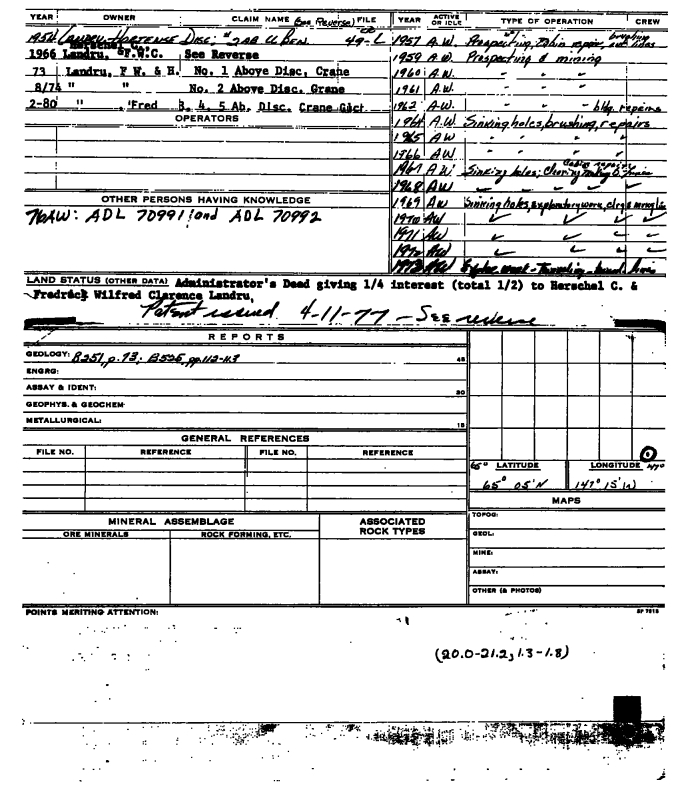 YEAR OWNER CLAIM NAME (See Reverse) FILE
1954 LANDRU-HORTENSE DISC; 2AB U BEN. 49-L
Herschel C.,
1966 Landru, F.W.C. See Reverse
73 Landru, F W. & H. No. 1 Above Disc, Crane
8/74 " " No. 2 Above Disc. Crane
2-80 " 'Fred 3, 4, 5 Ab. Disc. Crane Gbct
OPERATORS
OTHER PERSONS HAVING KNOWLEDGE
76AW: ADL 70991 and ADL 70992
YEAR ACTIVE OR IDLE TYPE OF OPERATION CREW
1957 A.W. Prospecting, Cabin repair, brushing out lines
1959 A.W. Prospecting & mining
1960 A.W. " " "
1961 A.W. " " "
1962 A.W. " " - bldg. repairs
1964 A.W. Sinking holes, brushing, repairs
1965 AW " " "
1966 AW " " "
cabin repairs
1967 A.W. Sinking holes;
1968 AW
1969 AW Sinking holes, exploratory work,
1970 AW ✓ ✓ ✓ ✓
1971 AW ✓ ✓ ✓
1972 AW ✓ ✓ ✓
1973 AW
LAND STATUS (OTHER DATA) Administrator's Deed giving 1/4 interest (total 1/2) to Herschel C. &
Fredrick Wilfred Clarence Landru,
Patent issued 4-11-77 - See reverse
REPORTS
GEOLOGY: B251, p.73; B525, pp.112-113 45
ENGRG:
ASSAY & IDENT: 30
GEOPHYS. & GEOCHEM
METALLURGICAL: 15
GENERAL REFERENCES
FILE NO. REFERENCE FILE NO. REFERENCE
65° LATITUDE LONGITUDE 147°
65° 05'N 147° 15'W
MAPS
TOPOG:
GEOL:
MINE:
ASSAY:
OTHER (& PHOTOS)
MINERAL ASSEMBLAGE ASSOCIATED ROCK TYPES
ORE MINERALS ROCK FORMING, ETC.
POINTS MERITING ATTENTION:
(20.0-21.2, 1.3-1.8)